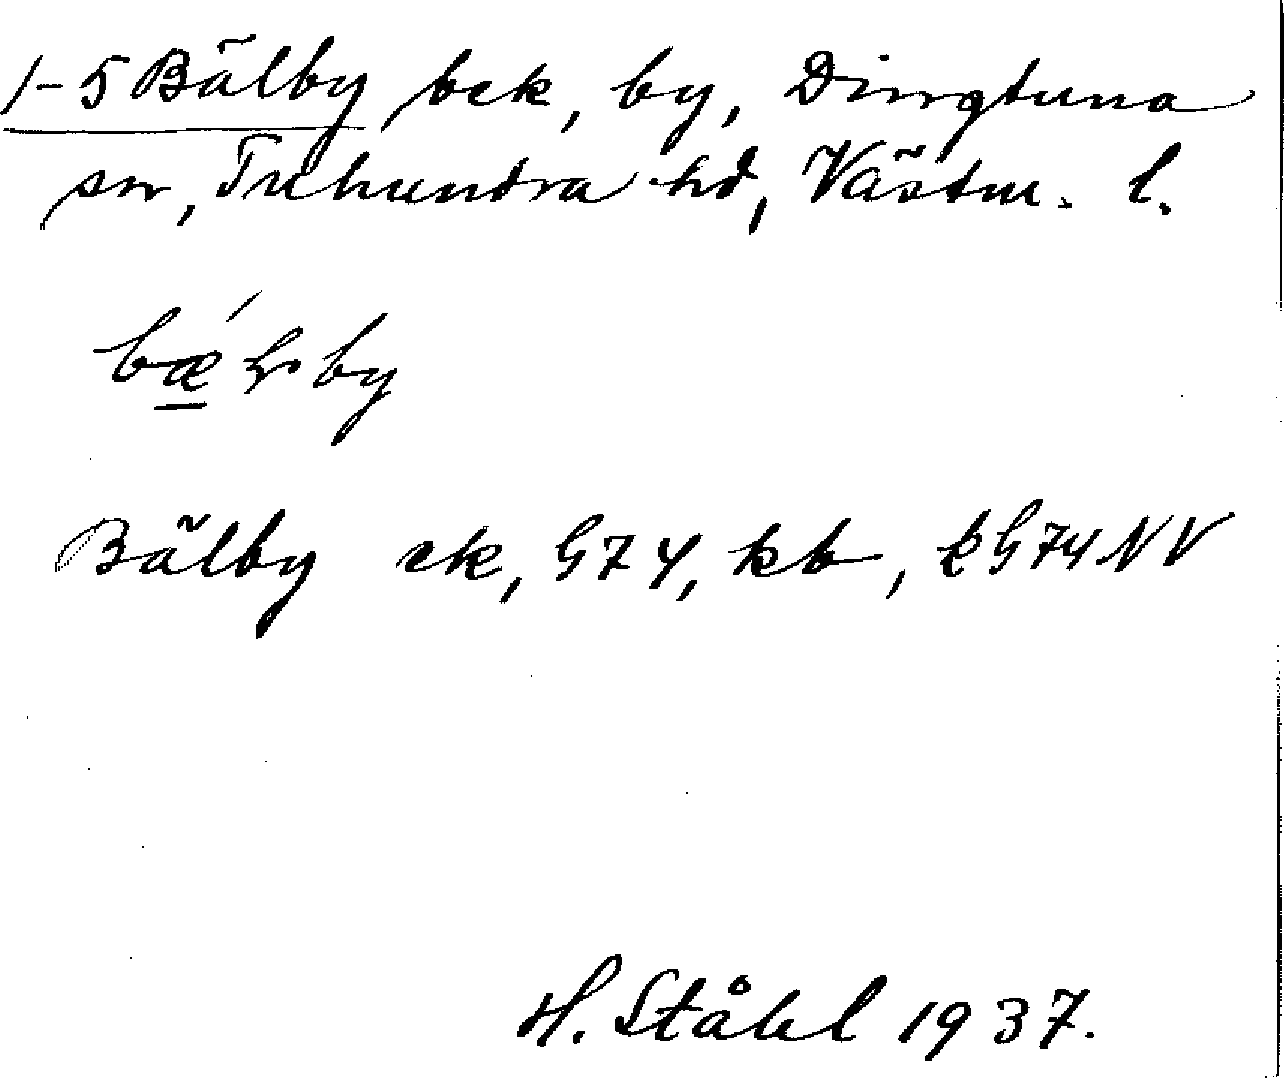 1-5 Bälby bek, by, Dingtuna
sn, Tuhundra hd, Västm. l.
Bälby ek, G74, kb, kG74NV
H. Ståhl 1937.